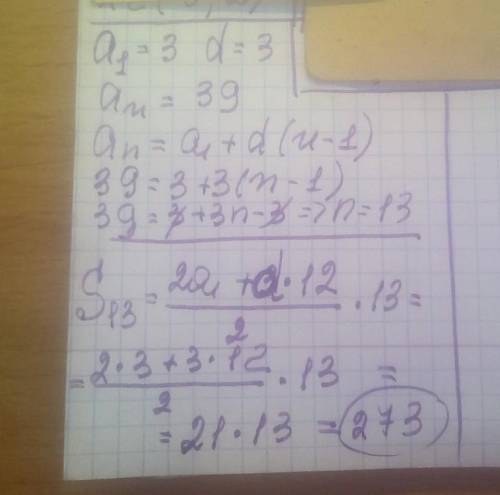 a₁ = 3 d = 3
aₙ = 39
aₙ = a₁ + d(n-1)
39 = 3 + 3(n-1)
39 = 3 + 3n - 3 => n = 13
S₁₃ = (2a₁ + d·12)/2 · 13 =
= (2·3 + 3·12)/2 · 13 =
= 21·13 = 273